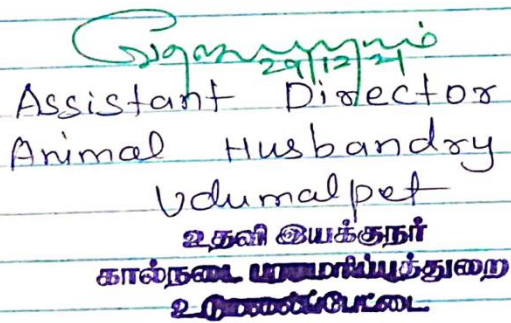 29/12/21
Assistant Director
Animal Husbandry
Udumalpet
உதவி இயக்குநர்
கால்நடை பராமரிப்புத்துறை
உடுமலைப்பேட்டை